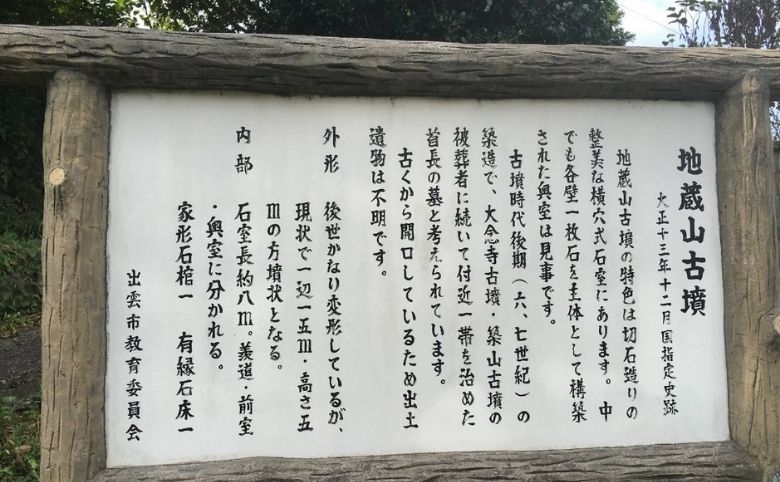 地蔵山古墳
大正十三年十二月国指定史跡
地蔵山古墳の特色は切石造りの
整美な横穴式石室にあります。中
でも各壁一枚石を主体として構築
された奥室は見事です。
古墳時代後期（六、七世紀）の
築造で、大念寺古墳・築山古墳の
被葬者に続いて付近一帯を治めた
首長の墓と考えられています。
古くから開口しているため出土
遺物は不明です。
外形 後世かなり変形しているが、
現状で一辺一五m・高さ五
mの方墳状となる。
内部 石室長約八m。羨道・前室
・奥室に分かれる。
家形石棺一 有縁石床一
出雲市教育委員会